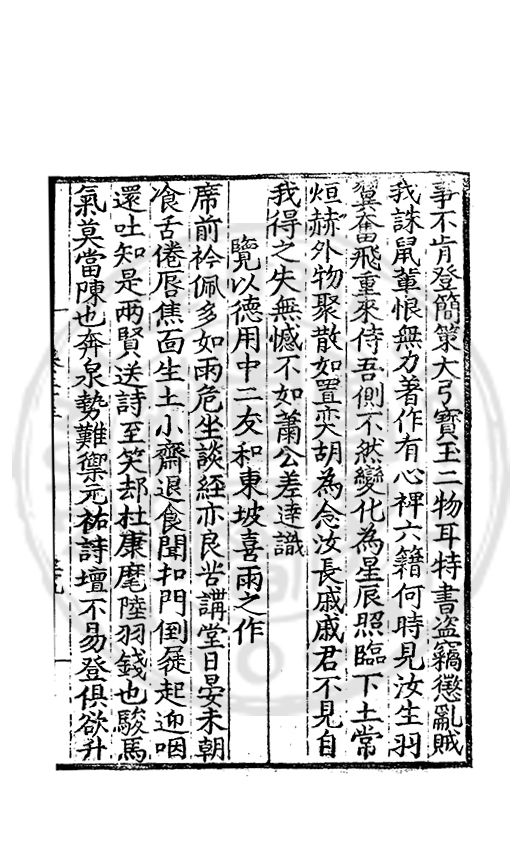 事不肯登簡策大弓寶玉二物耳特書盗竊懲亂賊
我誅鼠輩恨無力著作有心裨六籍何時見汝生羽
翼奮飛重來侍吾側不然變化為星辰照臨下土常
烜赫外物聚散如置奕胡為念汝長戚戚君不見自
我得之失無憾不如蕭公差達識
覽以德用中二友和東坡喜雨之作
席前衿佩多如雨危坐談經亦良苦講堂日晏未朝
飡舌倦唇焦面生土小齋退食聞扣門倒屣起迎咽
還吐知是两賢送詩至笑却杜康麾陸羽錢也駿馬
氣莫當陳也奔泉勢難禦元祐詩壇不易登俱欲升